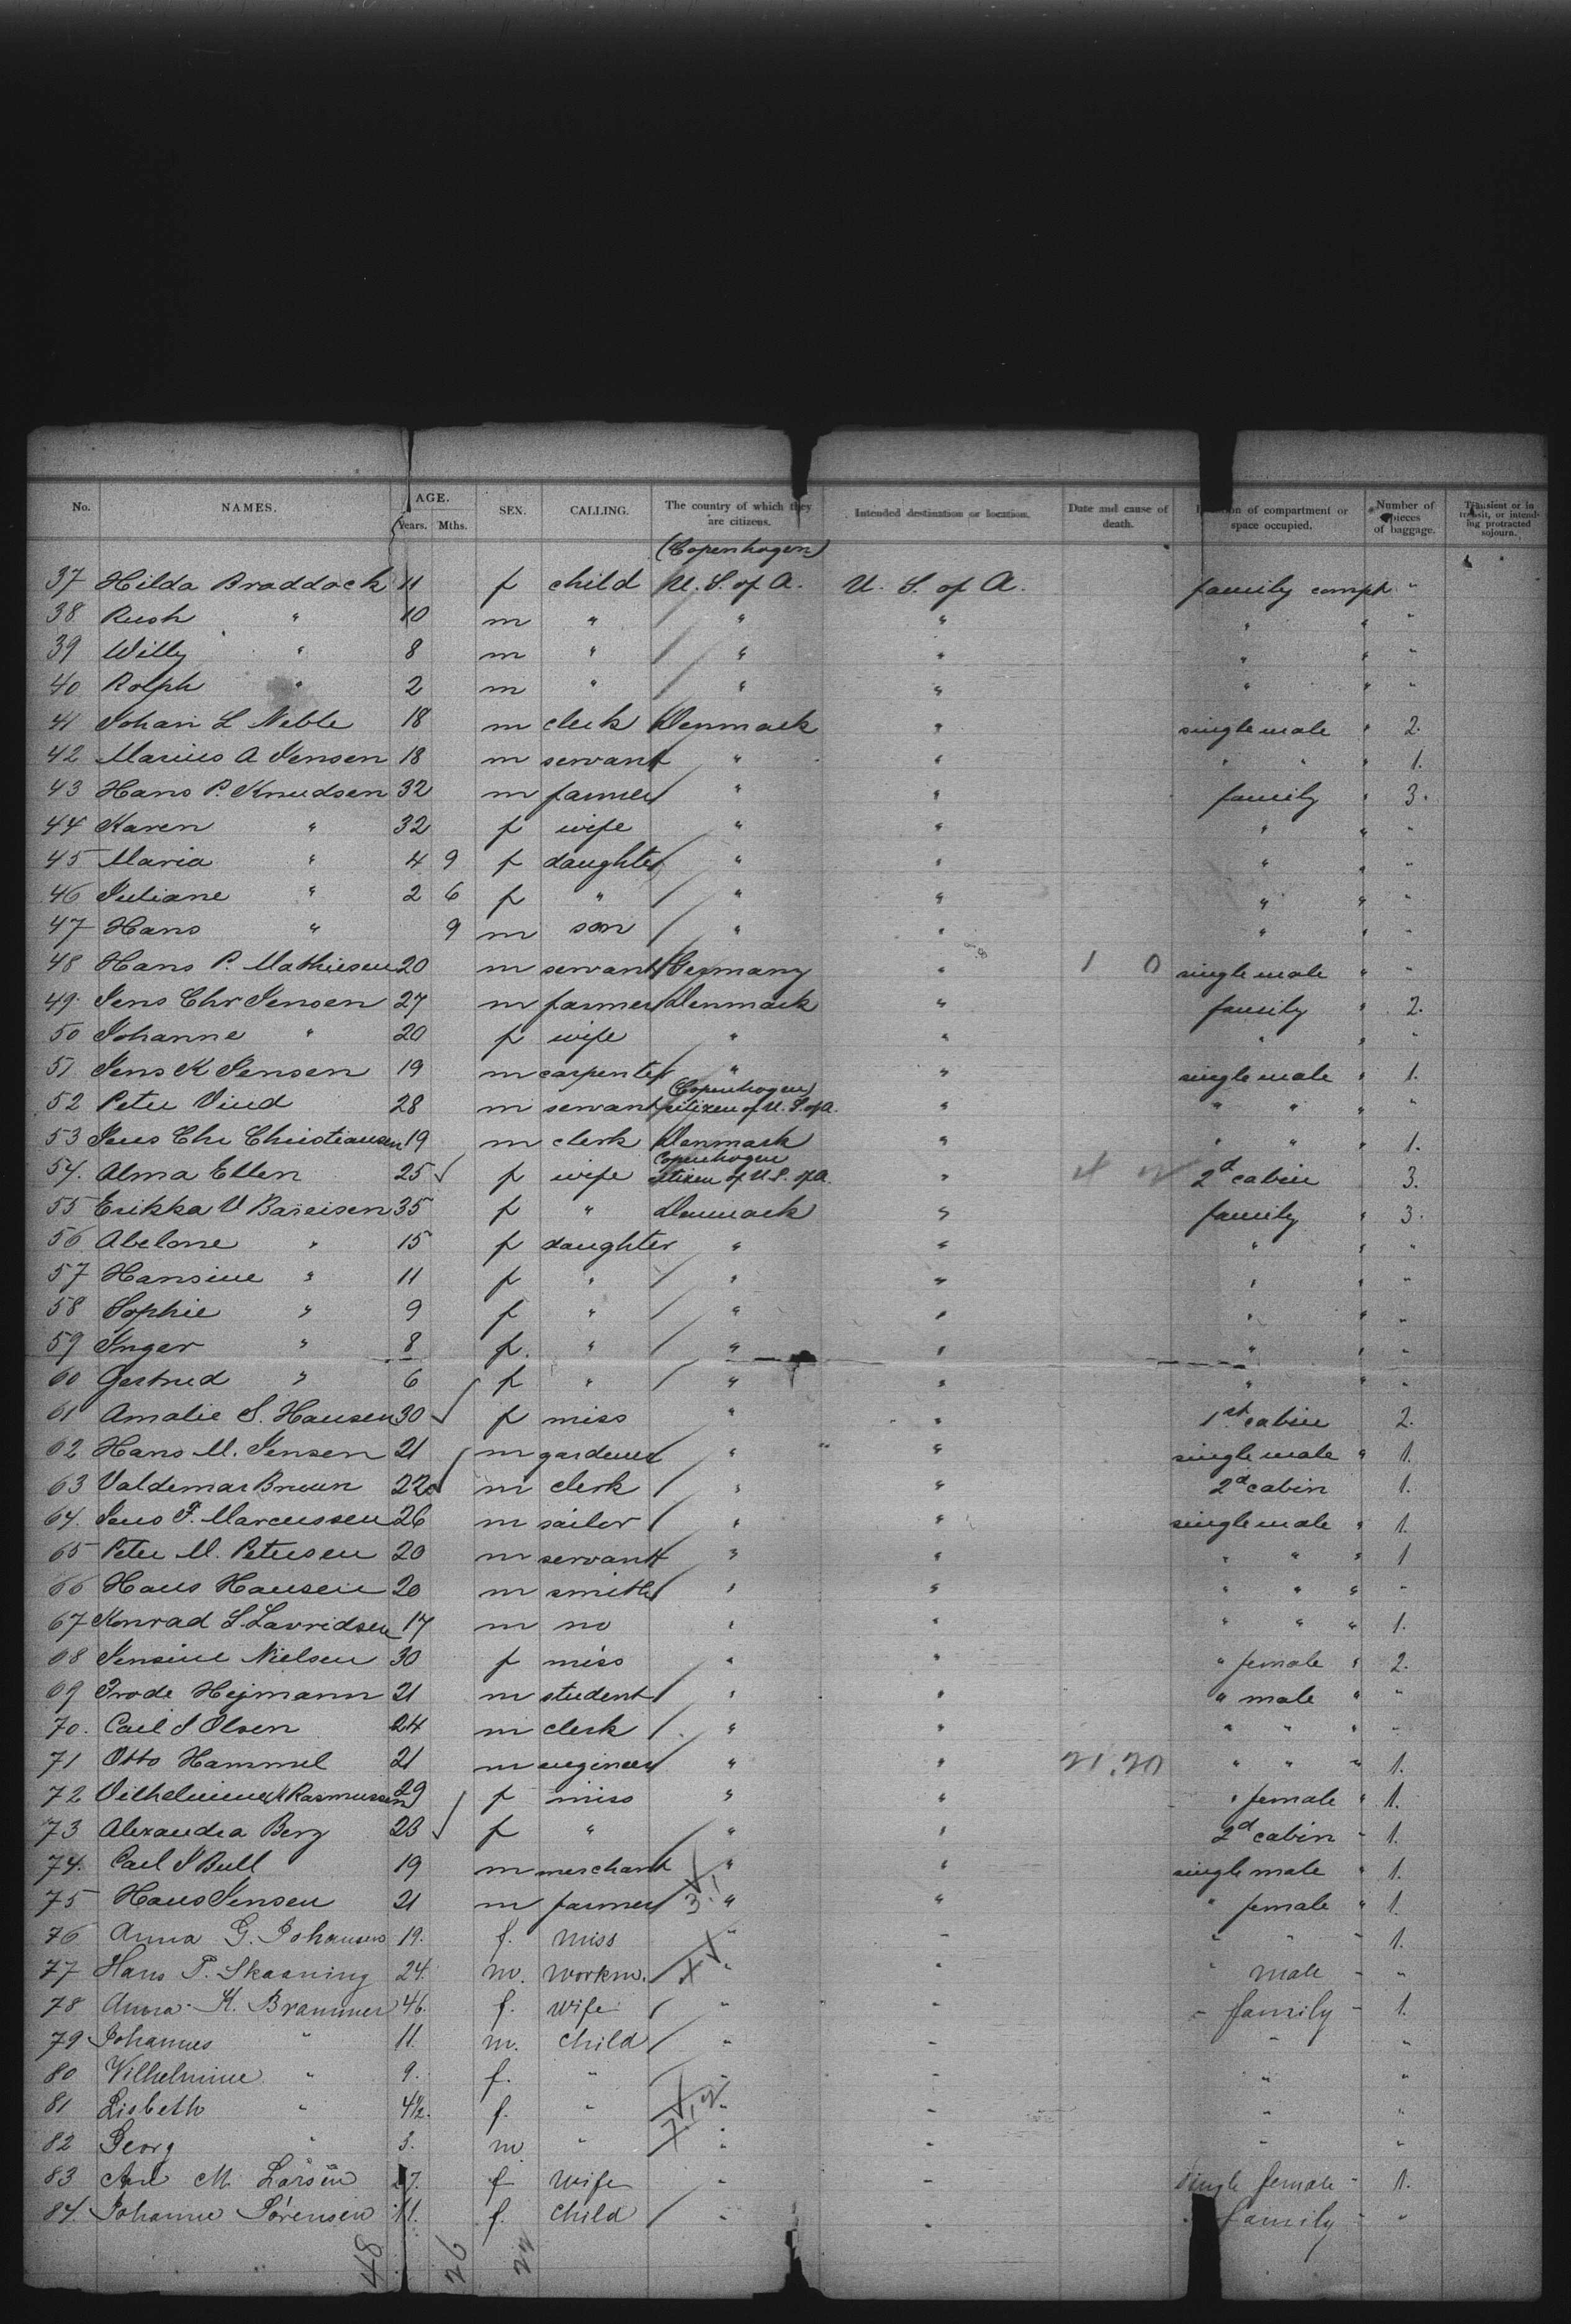 No. NAMES. AGE. Years. Mths. SEX. CALLING. The country of which they are citizens. Intended destination or location. Date and cause of death. of compartment or space occupied. Number of pieces of baggage. Transient or in transit, or intending protracted sojourn.
(Copenhagen)
37 Hilda Braddock 11 f child U. S. of A. U. S. of A. family compt "
38 Rush " 10 m " " " " " "
39 Willy " 8 m " " " " " "
40 Rolph " 2 m " " " " " "
41 Johan L Neble 18 m clerk Denmark " single male " 2.
42 Marius A Jensen 18 m servant " " " " " 1.
43 Hans P. Knudsen 32 m farmer " " family " 3.
44 Karen " 32 f wife " " " " "
45 Maria " 4 9 f daughter " " " " "
46 Juliane " 2 6 f " " " " " "
47 Hans " 9 m son " " " " "
48 Hans P. Mathiesen 20 m servant Germany " 1 0 single male " "
49. Jens Chr Jensen 27 m farmer Denmark " family " 2.
50 Johanne " 20 f wife " " " " "
51 Jens K Jensen 19 m carpenter " " single male " 1.
52 Peter Vind 28 m servant (Copenhagen) citizen of U. S. of A. " " " " "
53 Jens Chr Christiansen 19 m clerk Denmark " " " " 1.
54. Alma Ellen 25 f wife Copenhagen citizen of U.S. of A. " 2d cabin 3.
55 Erikka V Bareisen 35 f " Denmark " family " 3.
56 Abelone " 15 f daughter " " " " "
57 Hansine " 11 f " " " " " "
58 Sophie " 9 f " " " " " "
59 Inger " 8 f. " " " " " "
60 Gertrud " 6 f " " " " " "
61 Amalie S. Hansen 30 f miss " " 1st cabin 2.
62 Hans M. Jensen 21 m gardener " " single male " 1.
63 Valdemar Bruun 22 m clerk " " 2d cabin 1.
64. Jens F. Marcussen 26 m sailor " " single male " 1.
65 Peter M. Petersen 20 m servant " " " " " 1
66 Hans Hansen 20 m smith " " " " " "
67 Konrad S. Lavridsen 17 m no " " " " " 1.
68 Jensine Nielsen 30 f miss " " " female " 2.
69 Frode Hejmann 21 m student " " " male " "
70. Carl J Olsen 24 m clerk " " " " " "
71 Otto Hammel 21 m engineer " " 21.20 " " " 1.
72 Vilhelmine Rasmussen 29 f miss " " " female " 1.
73 Alexandra Berg 23 f " " " 2d cabin " 1.
74. Carl J Bull 19 m merchant " " single male " 1.
75 Hans Jensen 21 m farmer " " " female " 1.
76 Anna G. Johansen 19. f. miss " " " " " 1.
77 Hans P. Skasning 24. m. workm. " " " male " "
78 Anna K. Brammer 46. f. wife " " " family " 1.
79 Johannes " 11. m. child " " " "
80 Vilhelmine " 9. f. " " " " "
81 Lisbeth " 4½. f. " " " " "
82 Georg " 3. m " " " " "
83 M. Larsen 7. f wife " " single female " 1.
84. Johanne Sørensen 11. f. child " " " family " "
48 26